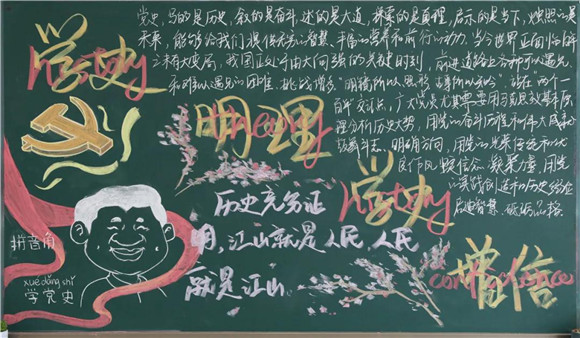 党史,写的是历史,叙的是奋斗,述的是大道,探索的是真理,启示的是当下,烛照的是
未来,能够给我们提供充分的智慧、丰富的营养和前行的动力.当今世界正面临
未有之大变局,我国正处于由大向强的关键时刻,前进道路上各种可以预见
和难以预见的困难、挑战增多."明镜所以照形,古事所以知今."站在"两个一
百年"交汇点,广大党员尤其需要用马克思主义基本原
理分析历史大势,用党的奋斗历程和伟大成就
鼓舞斗志、明确方向,用党的光荣传统和优
良作风坚定信念、凝聚力量,用党
的实践创造和历史经验
启迪智慧、砥砺品格.
学史
history
明理
theory
学史
history
增信
confidence
历史充分证
明,江山就是人民,人民
就是江山。
拼音角
xué dǎng shǐ
学党史